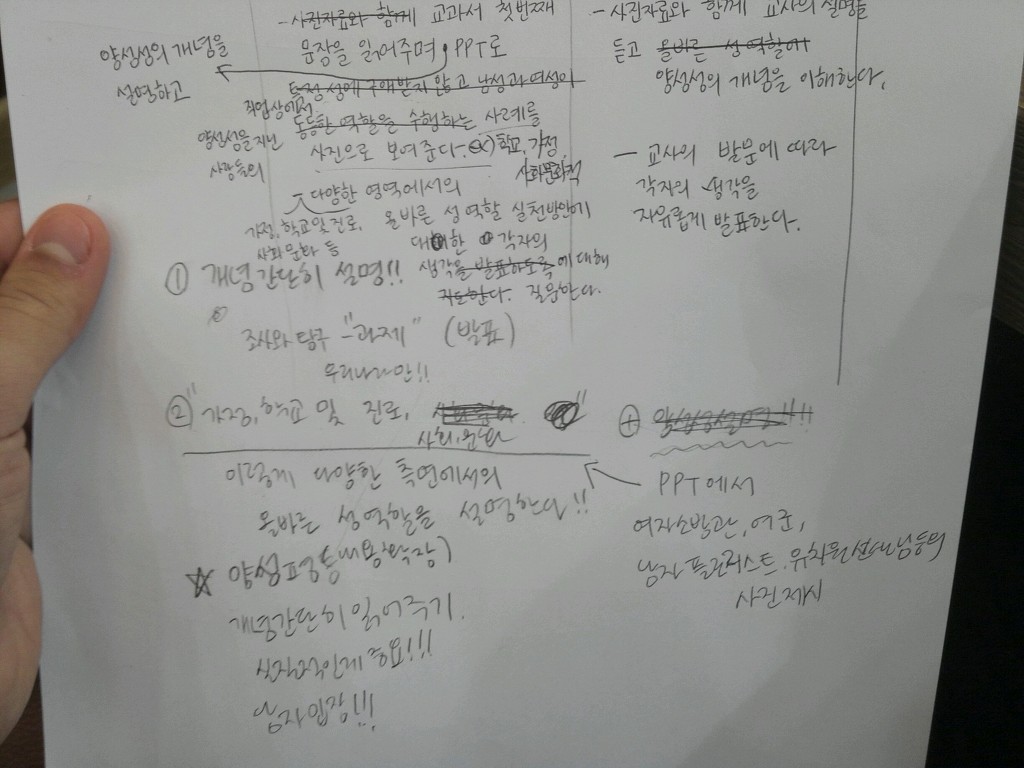 - 사진자료와 함께 교과서 첫번째
문장을 읽어주며, PPT로
양성성의 개념을
설명하고
특정 성에 구애받지 않고 남성과 여성이
직업상에서
동등한 역할을 수행하는 사례를
양성성을 지닌
사람들의
사진으로 보여준다. ex) 학교, 가정,
사회문화적
다양한 영역에서의
가정, 학교 및 진로,
사회 문화 등
올바른 성 역할 실천방안에
대한 각자의
생각을 발표하도록 에 대해
지도한다. 질문한다.
① 개념간단히 설명!!
조사와 탐구 "과제" (발표)
우리나라만!!
② "가정, 학교 및 진로, "
사회, 문화
이렇게 다양한 측면에서의
올바른 성 역할을 설명한다!!
☆ 양성평등
개념간단히 읽어주기.
중요!!!
남자입장!!!
- 사진자료와 함께 교사의 설명을
듣고 올바른 성 역할에
양성성의 개념을 이해한다.
- 교사의 발문에 따라
각자의 생각을
자유롭게 발표한다.
⊕
PPT에서
여자소방관, 여군,
남자 플로리스트, 유치원선생님등의
사진제시